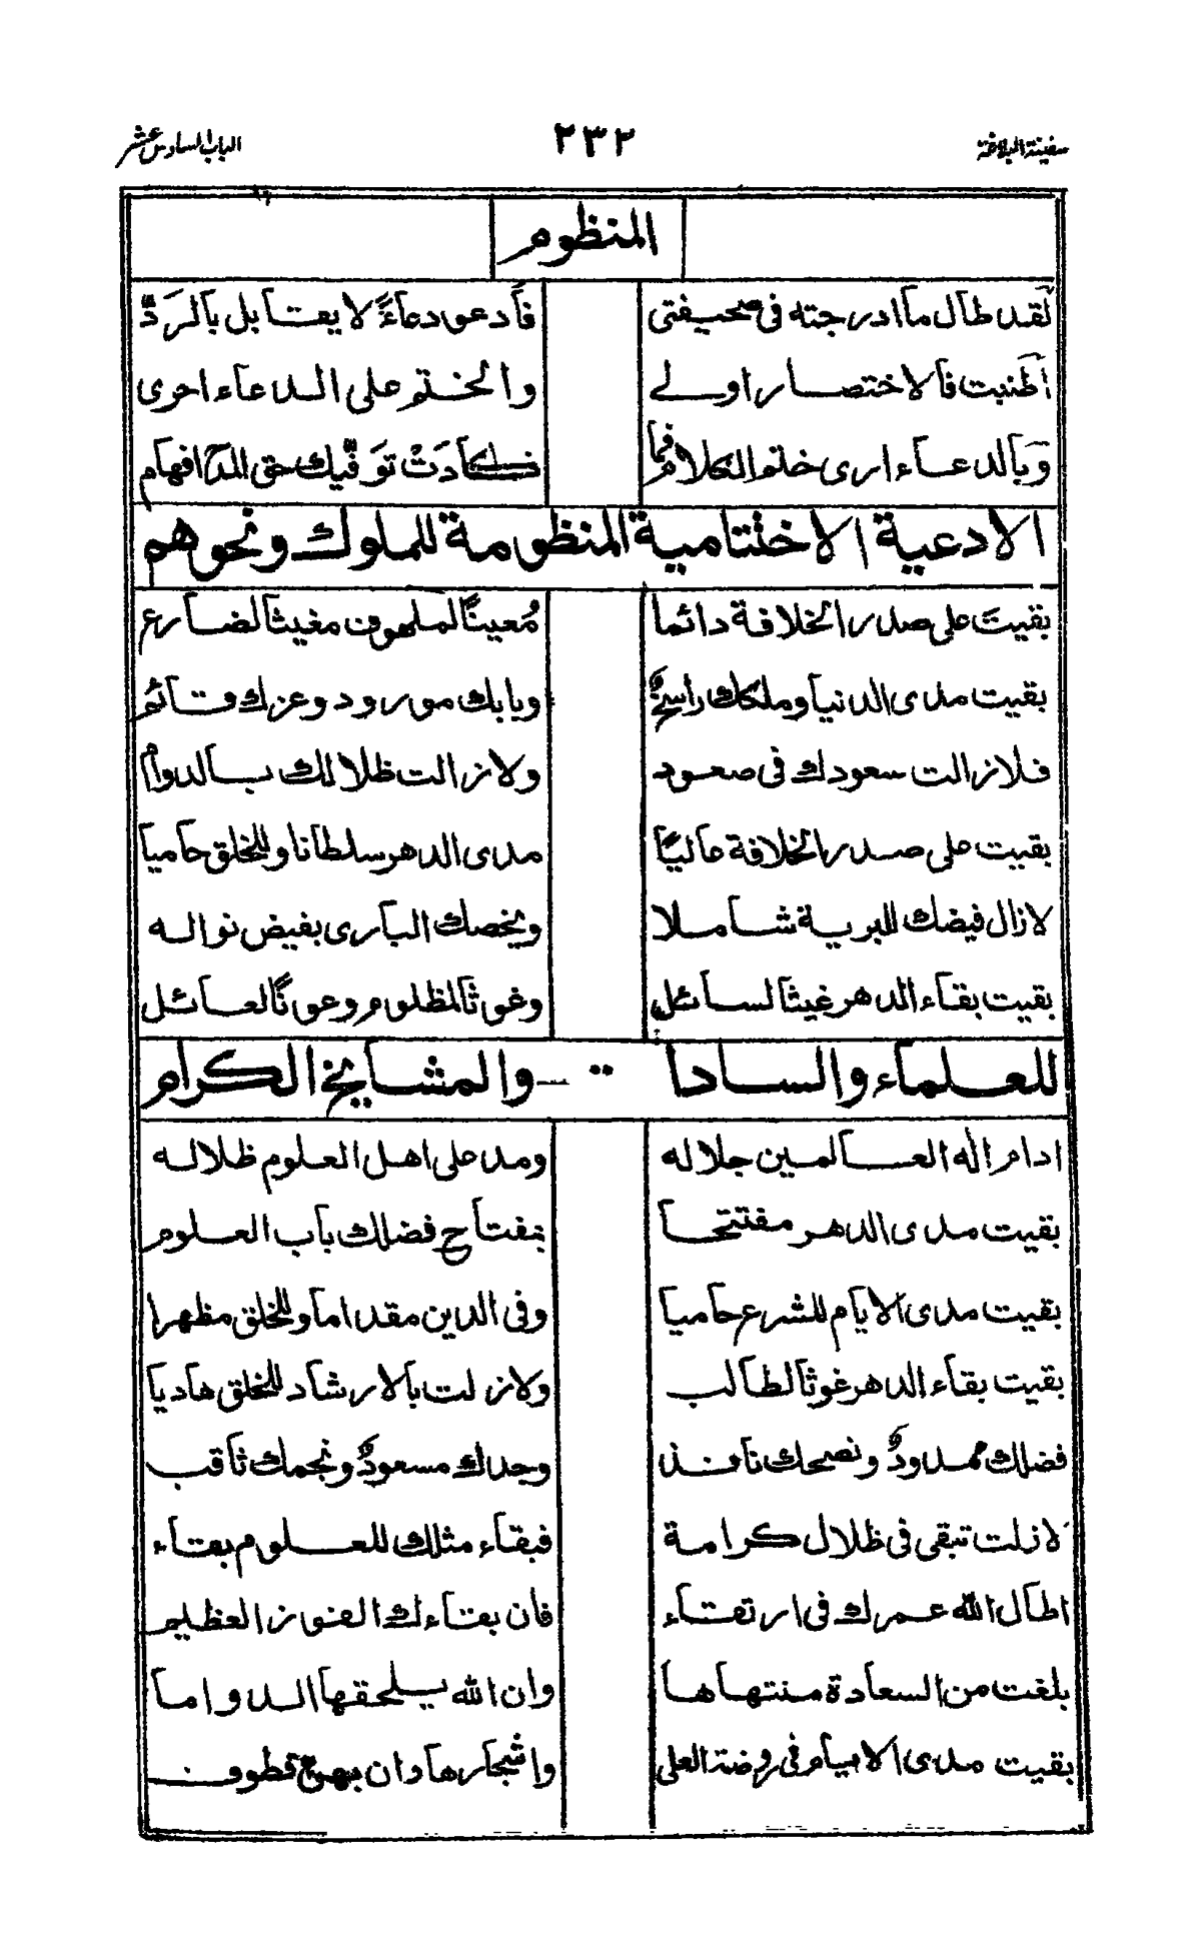 سفينة البلاغة ٢٣٢ الباب السادس عشر
المنظوم
لقد طال ما ادرجته فى صحيفتى فادعو دعاءً لا يقابل بالرَدِّ
اطنبت فالاختصار اولى والختم على الدعاء احرى
وبالدعاء ارى ختم الكلام فما كادَتْ توَفّيك حق المدح افهام
الادعية الاختتامية المنظومة للملوك ونحوهم
بقيتَ على صدر الخلافة دائما مُعينًا لملهوف مغيثا لضارع
بقيت مدى الدنيا وملكك راسخٌ وبابك مورود وعزك قائم
فلا زالت سعودك فى صعود ولا زالت ظلالك بالدوام
بقيت على صدر الخلافة عاليًا مدى الدهر سلطانا وللخلق حاميا
لا زال فيضك للبرية شاملا ويخصك البارى بفيض نواله
بقيت بقاء الدهر غيثا لسائل وغوثا لمظلوم وعونًا لعائل
للعلماء والسادات والمشايخ الكرام
ادام اله العالمين جلاله ومد على اهل العلوم ظلاله
بقيت مدى الدهر مفتتحا بمفتاح فضلك باب العلوم
بقيت مدى الايام للشرع حاميا وفى الدين مقداما وللخلق مظهرا
بقيت بقاء الدهر غوثا لطالب ولا زلت بالارشاد للخلق هاديا
فضلك ممدودٌ ونصحك نافذ وجدك مسعودٌ ونجمك ثاقب
لا زلت تبقى فى ظلال كرامة فبقاء مثلك للعلوم بقاء
اطال الله عمرك فى ارتقاء فان بقاءك الفوز العظيم
بلغت من السعادة منتهاها وان الله يلحقها الدواما
بقيت مدى الايام فى روضة العلى واشجارها دان بهيج قطوف